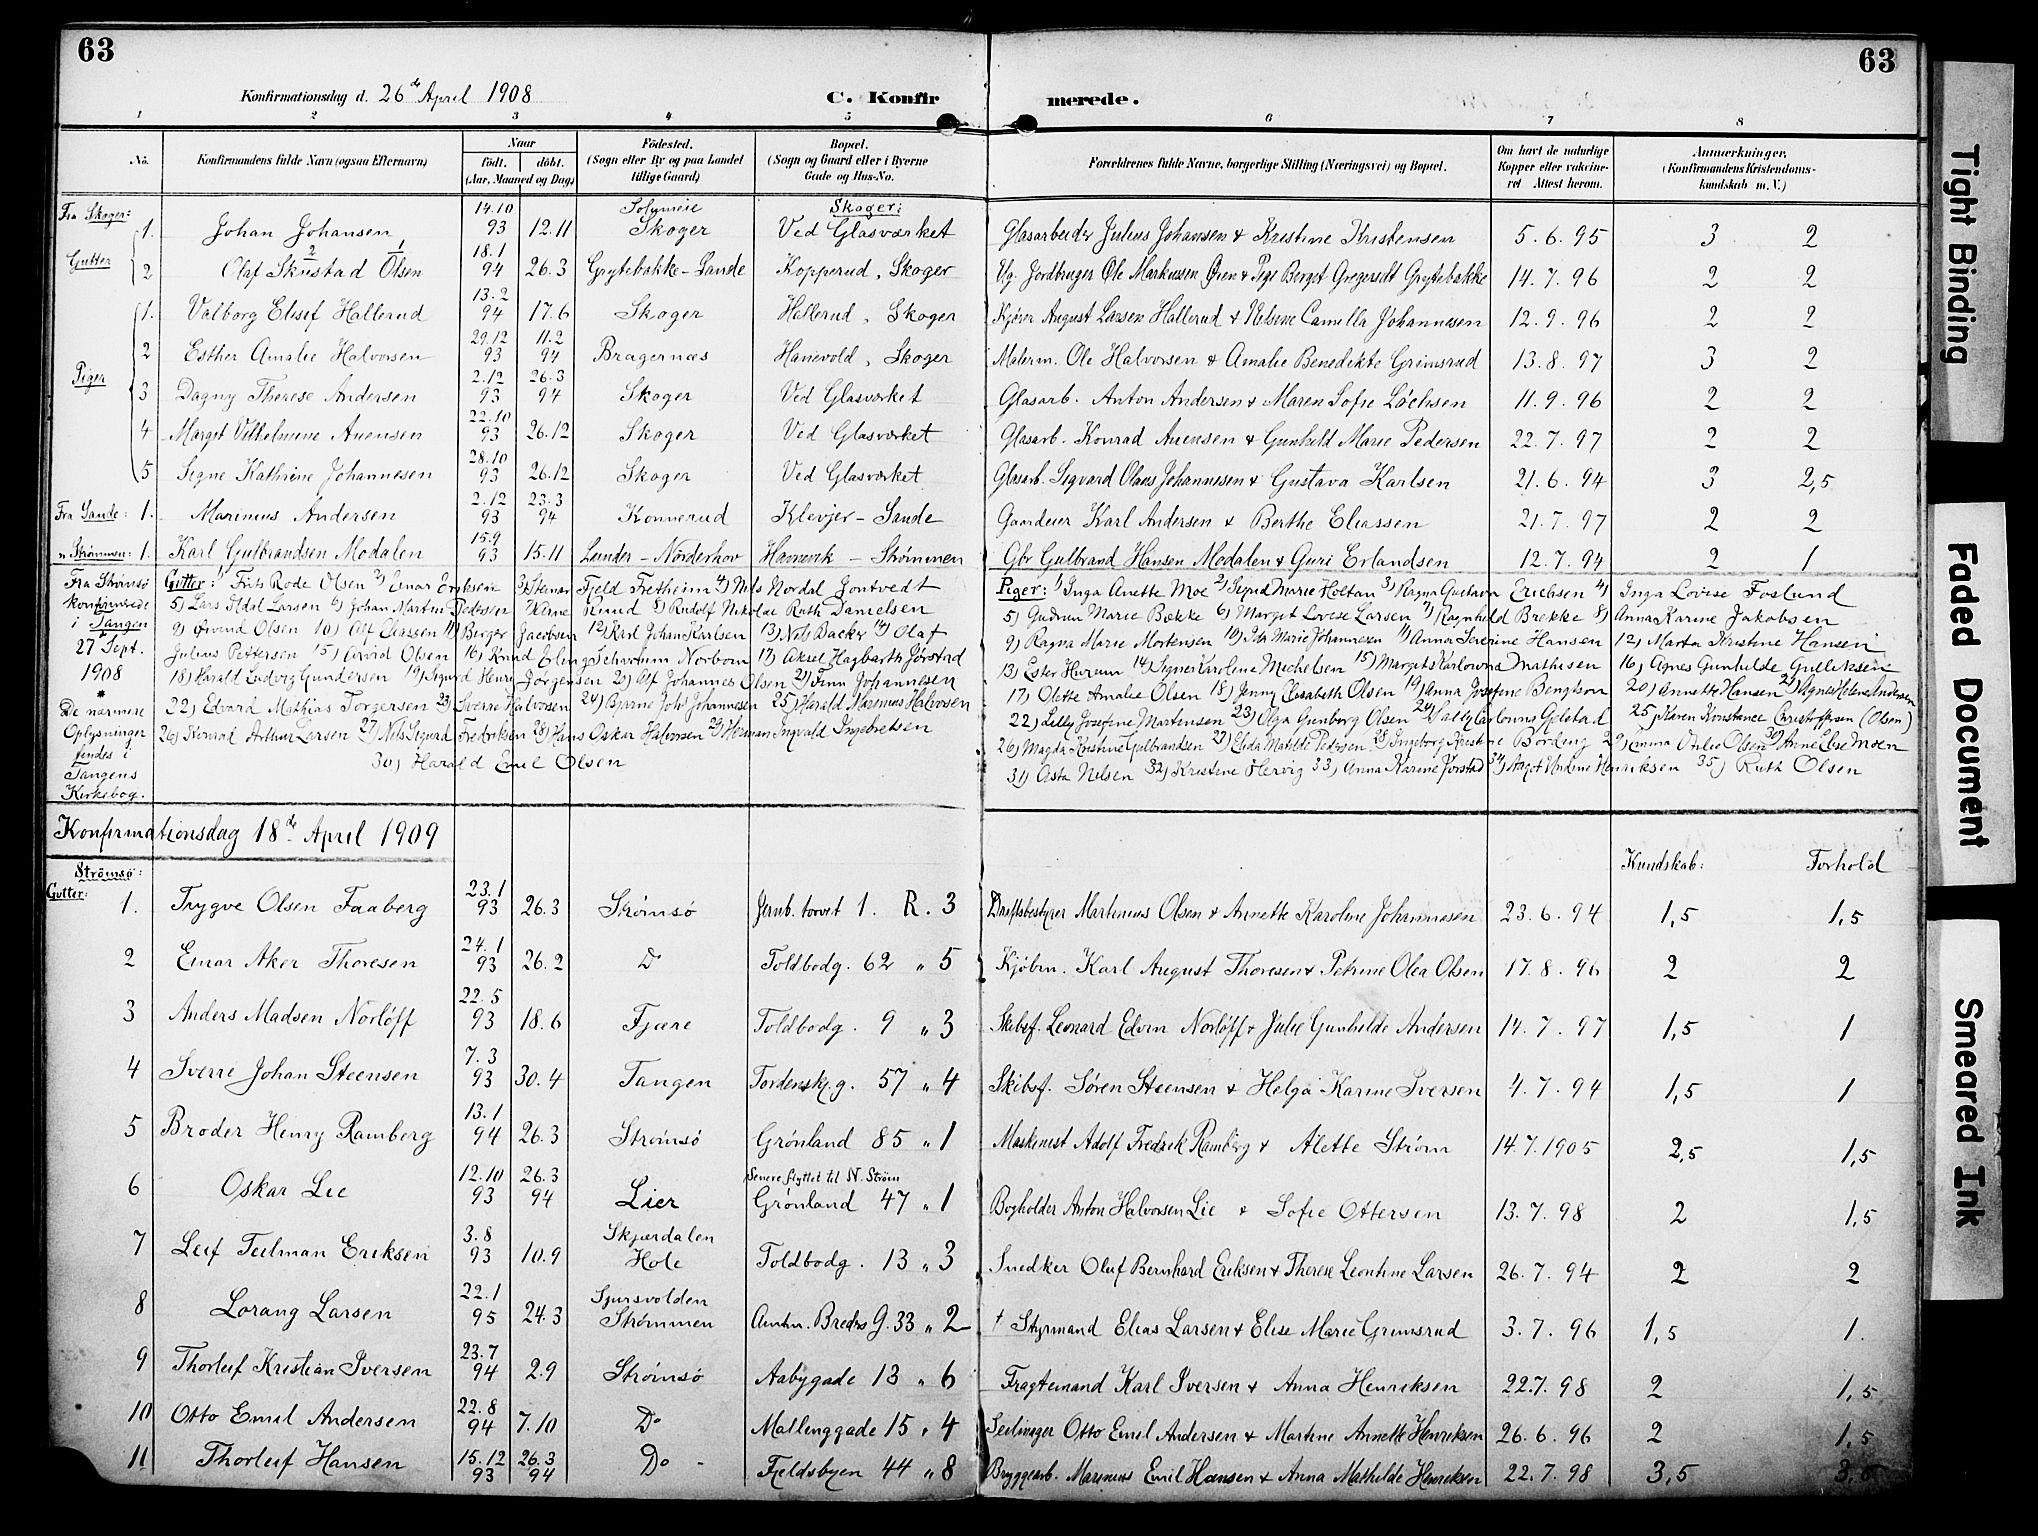 63
63
Konfirmationsdag d. 26de April 1908
C. Konfir merede.
1 2 3 4 5 6 7 8
No. Konfirmandens fulde Navn (ogsaa Efternavn) Naar født. døbt. (Aar, Maaned og Dag) Fødested. (Sogn eller By og paa Landet tillige Gaard) Bopæl. (Sogn og Gaard eller i Byerne Gade og Hus-No. Forældrenes fulde Navne, borgerlige Stilling (Næringsvei) og Bopæl. Om havt de naturlige Kopper eller vakcineret Attest herom. Anmærkninger, (Konfirmandens Kristendomskundskab m. V.)
Fra Skoger: Skoger:
Gutter
1. Johan Johansen 14.10 93 12.11 Solumsie Skoger Ved Glasværket Glasarbeider Julius Johansen + Kristine Kristensen 5.6.95 3 2
2 Olaf Skustad Olsen 18.1 94 26.3 Grytebakke - Sande Kopperud, Skoger Ug. Jordbruger Ole Markussen Øren + Pige Berget Gregersdt Grytebakke 14.7.96 2 2
Piger
1. Valborg Elisif Hallerud 13.2 94 17.6 Skoger Hallerud, Skoger Kjører August Larsen Hallerud + Nelsine Camilla Johannesen 12.9.96 2 2
2 Esther Amalie Halvorsen 29.12 93 11.2 94 Bragernæs Hanevold, Skoger Malerm. Ole Halvorsen + Amalie Benedikte Grimsrud 13.8.97 3 2
3 Dagny Therese Andersen 2.12 93 26.3 94 Skoger Ved Glasværket Glasarb. Anton Andersen + Maren Sofie Løchsen 11.9.96 2 2
4 Margit Vilhelmine Auensen 22.10 93 26.12 Skoger Ved Glasværket Glasarb. Konrad Auensen + Gunhild Marie Pedersen 22.7.97 2 2
5 Signe Kathrine Johannesen 28.10 93 26.12 Skoger Ved Glasværket Glasarb. Sigvard Olaus Johannesen + Gustava Karlsen 21.6.94 3 2,5
Fra Sande: 1. Marinius Andersen 2.12 93 23.3 94 Konnerud Klevjer - Sande Gaardeier Karl Andersen + Berthe Eliassen 21.7.97 2 2
" Strømmen: 1. Karl Gulbrandsen Modalen 15.9 93 15.11 Lunder - Norderhov Hannevik - Strømmen Gbr Gulbrand Hansen Modalen + Guri Erlandsen 12.7.94 2 1
Fra Strømsø konfirmerede i Tangen 27 Sept. 1908
* De nærmere Oplysninger findes i Tangens Kirkebog.
Gutter: 1) Frits Rode Olsen 2) Einar Eriksen 3) Steinar Fjeld Fretheim 4) Nils Nordal Jontvedt
5) Lars Ildal Larsen 6) Johan Martin Pedersen 7) Arne Ruud 8) Rudolf Nikolai Ruth Danielsen
9) Øivind Olsen 10) Alf Eliassen 11) Birger Jacobsen 12) Karl Johan Karlsen 13) Nils Backer 14) Olaf
Julius Pettersen 15) Arvid Olsen 16) Knud Erling Schivhum Norbom 17) Aksel Hagbarth Jørstad
18) Harald Ludvig Gundersen 19) Sigurd Henri Jørgensen 20) Alf Johannes Olsen 21) Finn Johannesen
22) Edvard Mathias Torgersen 23) Sverre Halvorsen 24) Bjarne Johs Johannesen 25) Harald Marinius Halvorsen
26) Konrad Arthur Larsen 27) Nils Sigurd Fredriksen 28) Hans Oskar Halvorsen 29) Herman Ingvald Ingebretsen
30) Harald Emil Olsen
Piger: 1) Inga Anette Moe 2) Sigrid Marie Holtan 3) Ragna Gustava Erichsen 4) Inga Lovise Foslund
5) Gudrun Marie Bække 6) Margit Lovise Larsen 7) Ragnhild Brekke 8) Anna Karine Jakobsen
9) Ragna Marie Mortensen 10) Ida Marie Johannesen 11) Anna Severine Hansen 12) Marta Kristine Hansen
13) Ester Hurum 14) Signe Karoline Michelsen 15) Margit Karlowna Mathisen 16) Agnes Gunhilde Gulliksen
17) Olette Amalie Olsen 18) Jenny Elisabeth Olsen 19) Anna Josefine Bengtson 20) Annette Hansen 21) Agnes Helene Andersen
22) Lilly Josefine Martensen 23) Olga Gunborg Olsen 24) Vally Carlouna Gjelstad 25) Karen Konstance Christoffersen (Olsen)
26) Magda Kristine Gulbrandsen 27) Elida Matilde Pedersen 28) Ingeborg Kristine Bording 29) Emma Otilie Olsen 30) Anne Elise Moen
31) Asta Nilsen 32) Kristine Hervig 33) Anna Karine Jørstad 34) Aagot Undine Henriksen 35) Ruth Olsen
Konfirmationsdag 18de April 1909
Strømsø: Kundskab: Forhold
Gutter:
1. Trygve Olsen Faaberg 23.1 93 26.3 Strømsø Jernb. torvet 1. R. 3 Driftsbestyrer Martinius Olsen + Annette Karoline Johannesen 23.6.94 1,5 1,5
2 Einar Aker Thoresen 24.1 93 26.2 Do Toldbodg. 62 " 5 Kjøbm. Karl August Thoresen + Petrine Olea Olsen 17.8.96 2 2
3 Anders Madsen Norløff 22.5 93 18.6 Fjære Toldbodg. 9 " 3 Skibsf. Leonard Edvin Norløff + Julie Gunhilde Andersen 14.7.97 1,5 1
4 Sverre Johan Steensen 7.3 93 30.4 Tangen Tordenskj.g. 57 " 4 Skibsf. Søren Steensen + Helga Karine Iversen 4.7.94 1,5 1
5 Broder Henry Ramberg 13.1 94 26.3 Strømsø Grønland 85 " 1 Maskinist Adolf Fredrik Ramberg + Alette Strøm 14.7.1905 2,5 1,5
6 Oskar Lie 12.10 93 26.3 94 Lier Senere flyttet til N. Strøm Grønland 47 " 1 Bogholder Anton Halvorsen Lie + Sofie Ottersen 13.7.98 2 1,5
7 Leif Teilman Eriksen 3.8 93 10.9 Skjærdalen Hole Toldbodg. 13 " 3 Snedker Oluf Bernhard Eriksen + Therese Leontine Larsen 26.7.94 2 2
8 Lorang Larsen 22.1 95 24.3 Sjursvolden Strømmen Amtm. Bredes G. 33 " 2 † Styrmand Elias Larsen + Elise Marie Grimsrud 3.7.96 1,5 1.
9 Thorleif Kristian Iversen 23.7 94 2.9 Strømsø Aabygade 13 " 6 Fragtemand Karl Iversen + Anna Henriksen 22.7.98 2 1,5
10 Otto Emil Andersen 22.8 94 7.10 Do Mallinggade 15 " 4 Seilmager Otto Emil Andersen + Martine Annette Henriksen 26.6.96 2 1,5
11 Thorleif Hansen 15.12 93 26.3 94 Do - Fjeldsbyen 44 " 8 Bryggearb. Marinius Emil Hansen + Anna Mathilde Henriksen 22.7.98 3,5 3,5
Tight Binding
Faded Document
Smeared Ink